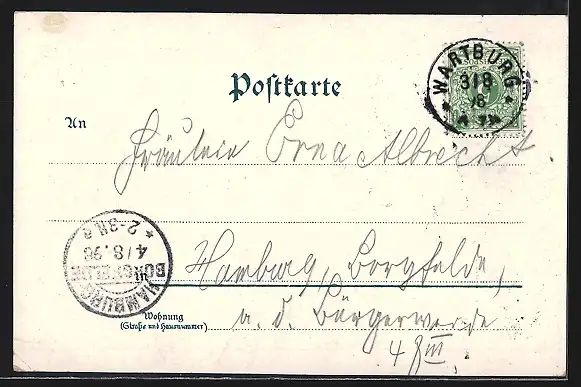 WARTBURG
3/8
Postkarte
An
Fräulein Erna Albrecht
HAMBURG
BORGFELDE
4/8.98
2-3N
in
Hamburg, Borgfelde,
Wohnung
(Straße und Hausnummer)
a. d. Bürgerweide
4 III.